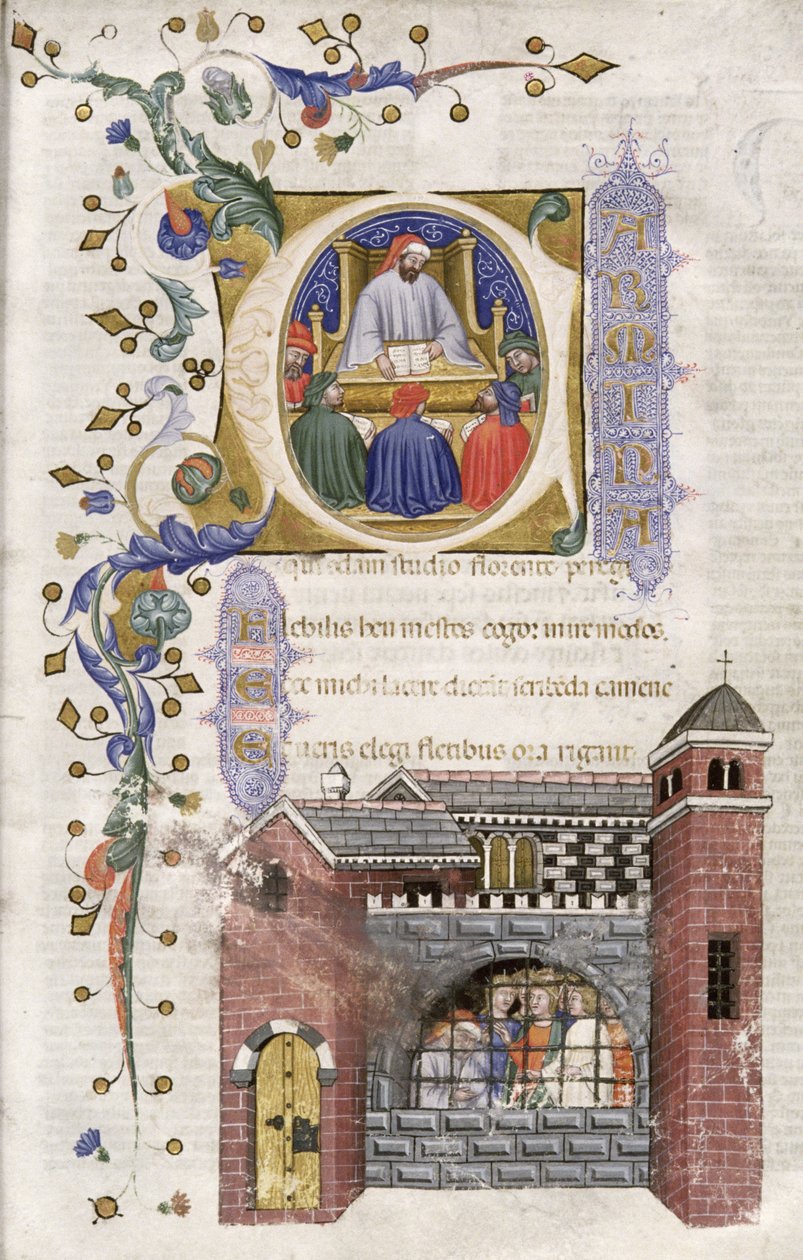 CARMINA
qui qōdam studio florente peregi
Flebilis heu mestos cogor inire modos.
Ecce michi lacere dictāt scribēda camene
Et ueris elegi fletibus ora rigant